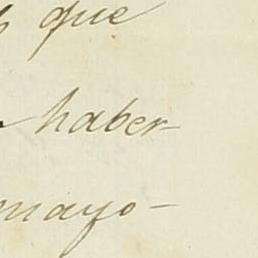 que
haber
mayo-